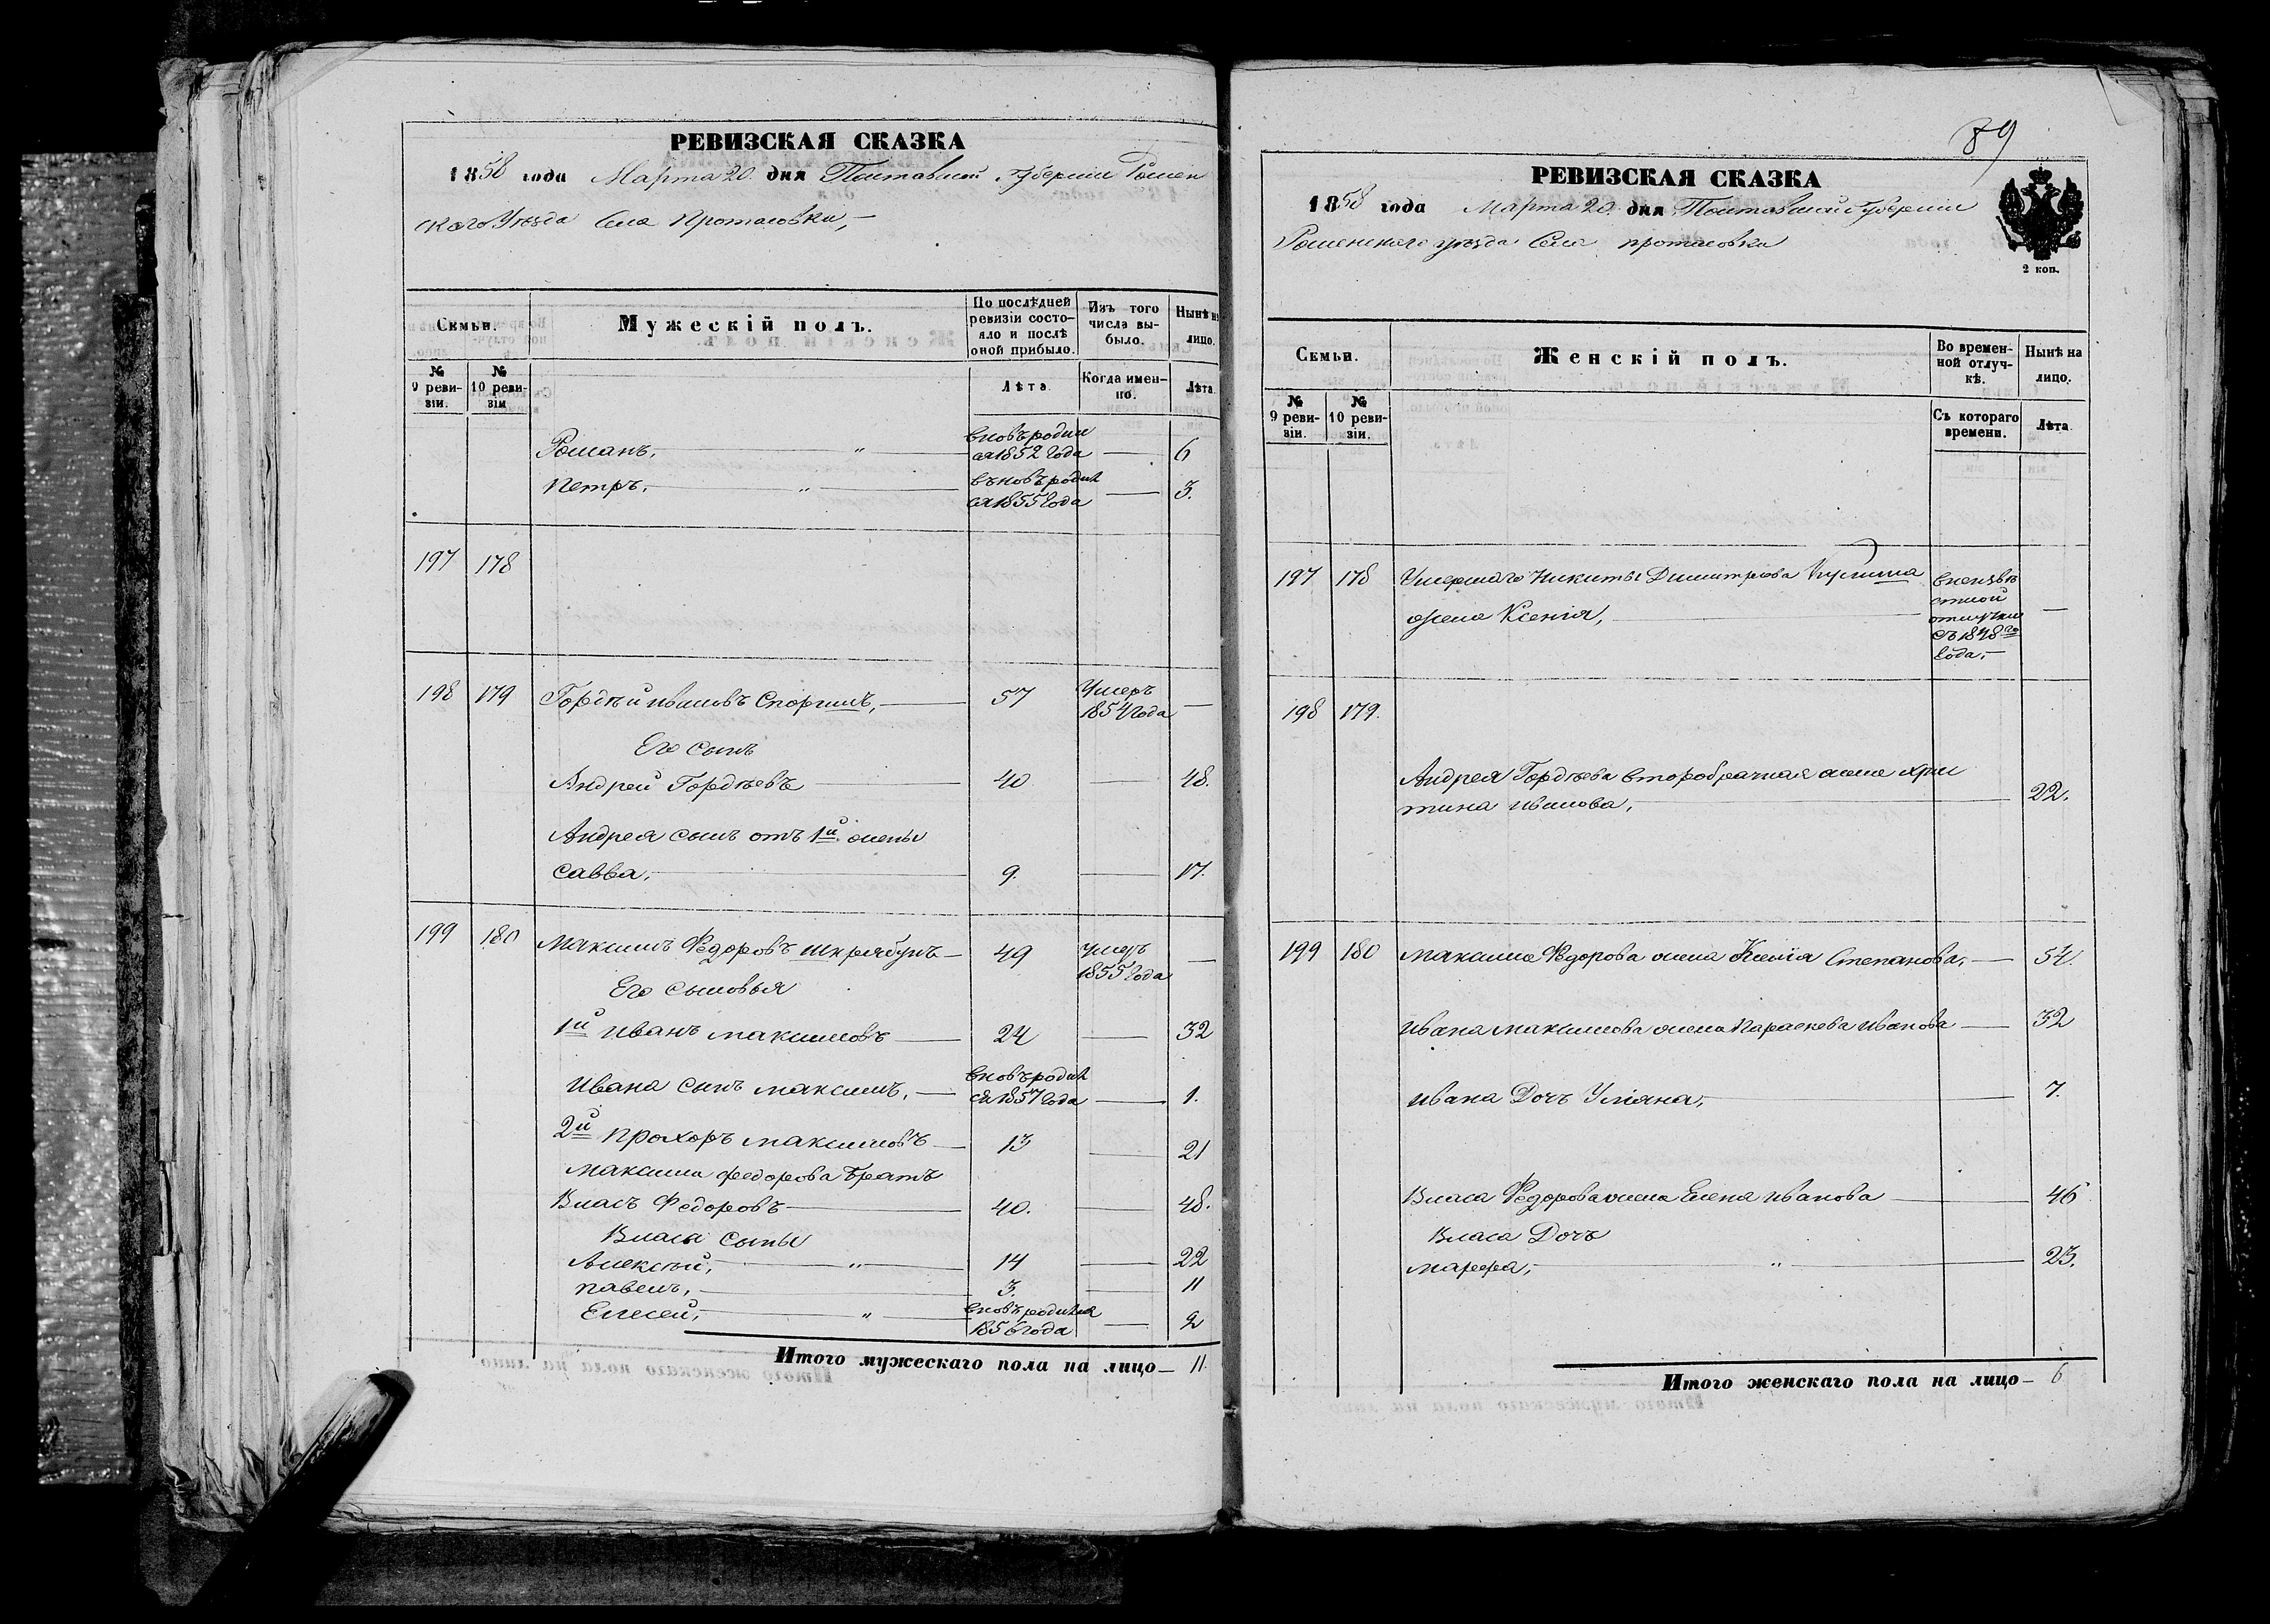 РЕВИЗСКАЯ СКАЗКА
1858 года Марта 20. дня Полтавской Губернии Ромен
скаго Уѣзда Села Протасовки,
Семьи.
Мужескій полъ.
По послѣдней ревизіи состояло и послѣ оной прибыло.
Изъ того числа выбыло.
Нынѣ на лицо.
№ 9 ревизіи.
№ 10 ревизіи
Лѣта
Когда именно.
Лѣта
Романъ, " вновь родил ся 1852 года — 6
Петръ. " вновь родил ся 1855 года — 3.
197 178
198 179 Гордѣй Ивановъ, — 57 Умеръ 1854 года —
Его сынъ
Андрей Гордѣевъ — 40 — 48.
Андрея сынъ отъ 1й жены
Савва, — 9. — 17.
199 180 Максимъ Федоровъ Шкрябунъ — 49 умеръ 1855 года —
Его сыновья
1й Иванъ Максимовъ — 24 — 32
Ивана сынъ Максимъ, — вновь родил ся 1857 года — 1.
2й Прохоръ Максимовъ — 13 — 21
Максима Федорова братъ
Власъ Федоровъ — 40. — 48.
Власа сыны
Алексѣй, " 14 — 22
Павелъ, — 3. — 11
Елисей, " вновь родился 1856 года — 2
Итого мужескаго пола на лицо — 11.
89
РЕВИЗСКАЯ СКАЗКА
1858 года Марта 20. дня Полтавской Губерніи
Роменскаго уѣзда Села Протасовки
2 коп.
Семьи.
Женскій полъ.
Во временной отлучкѣ.
Нынѣ на лицо.
№ 9 ревизіи.
№ 10 ревизіи.
Съ котораго времени.
Лѣта
197 178 Умершаго Никиты Димитрова
жена Ксенія, — в неизвѣстной отлучки съ 1848го года, — —
198 179.
Андрея Гордѣева второбрачная жена Хрис
тина Иванова, — 22.
199 180 Максима Федорова жена Ксенія Степанова, — 54.
Ивана Максимова жена Параскева Иванова — 32
Ивана Дочь Уліяна, — 7.
Власа Федорова жена Елена Иванова — 46
Власа Дочь
Марфа, " — 23.
Итого женскаго пола на лицо — 6